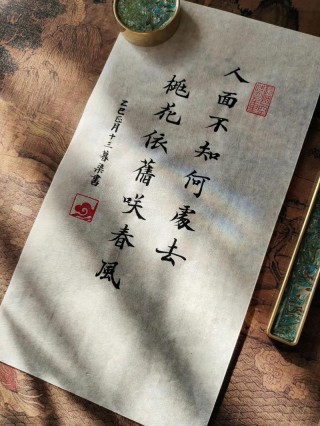 人面不知何處去
桃花依舊咲春風
乙巳正月十三暮染書